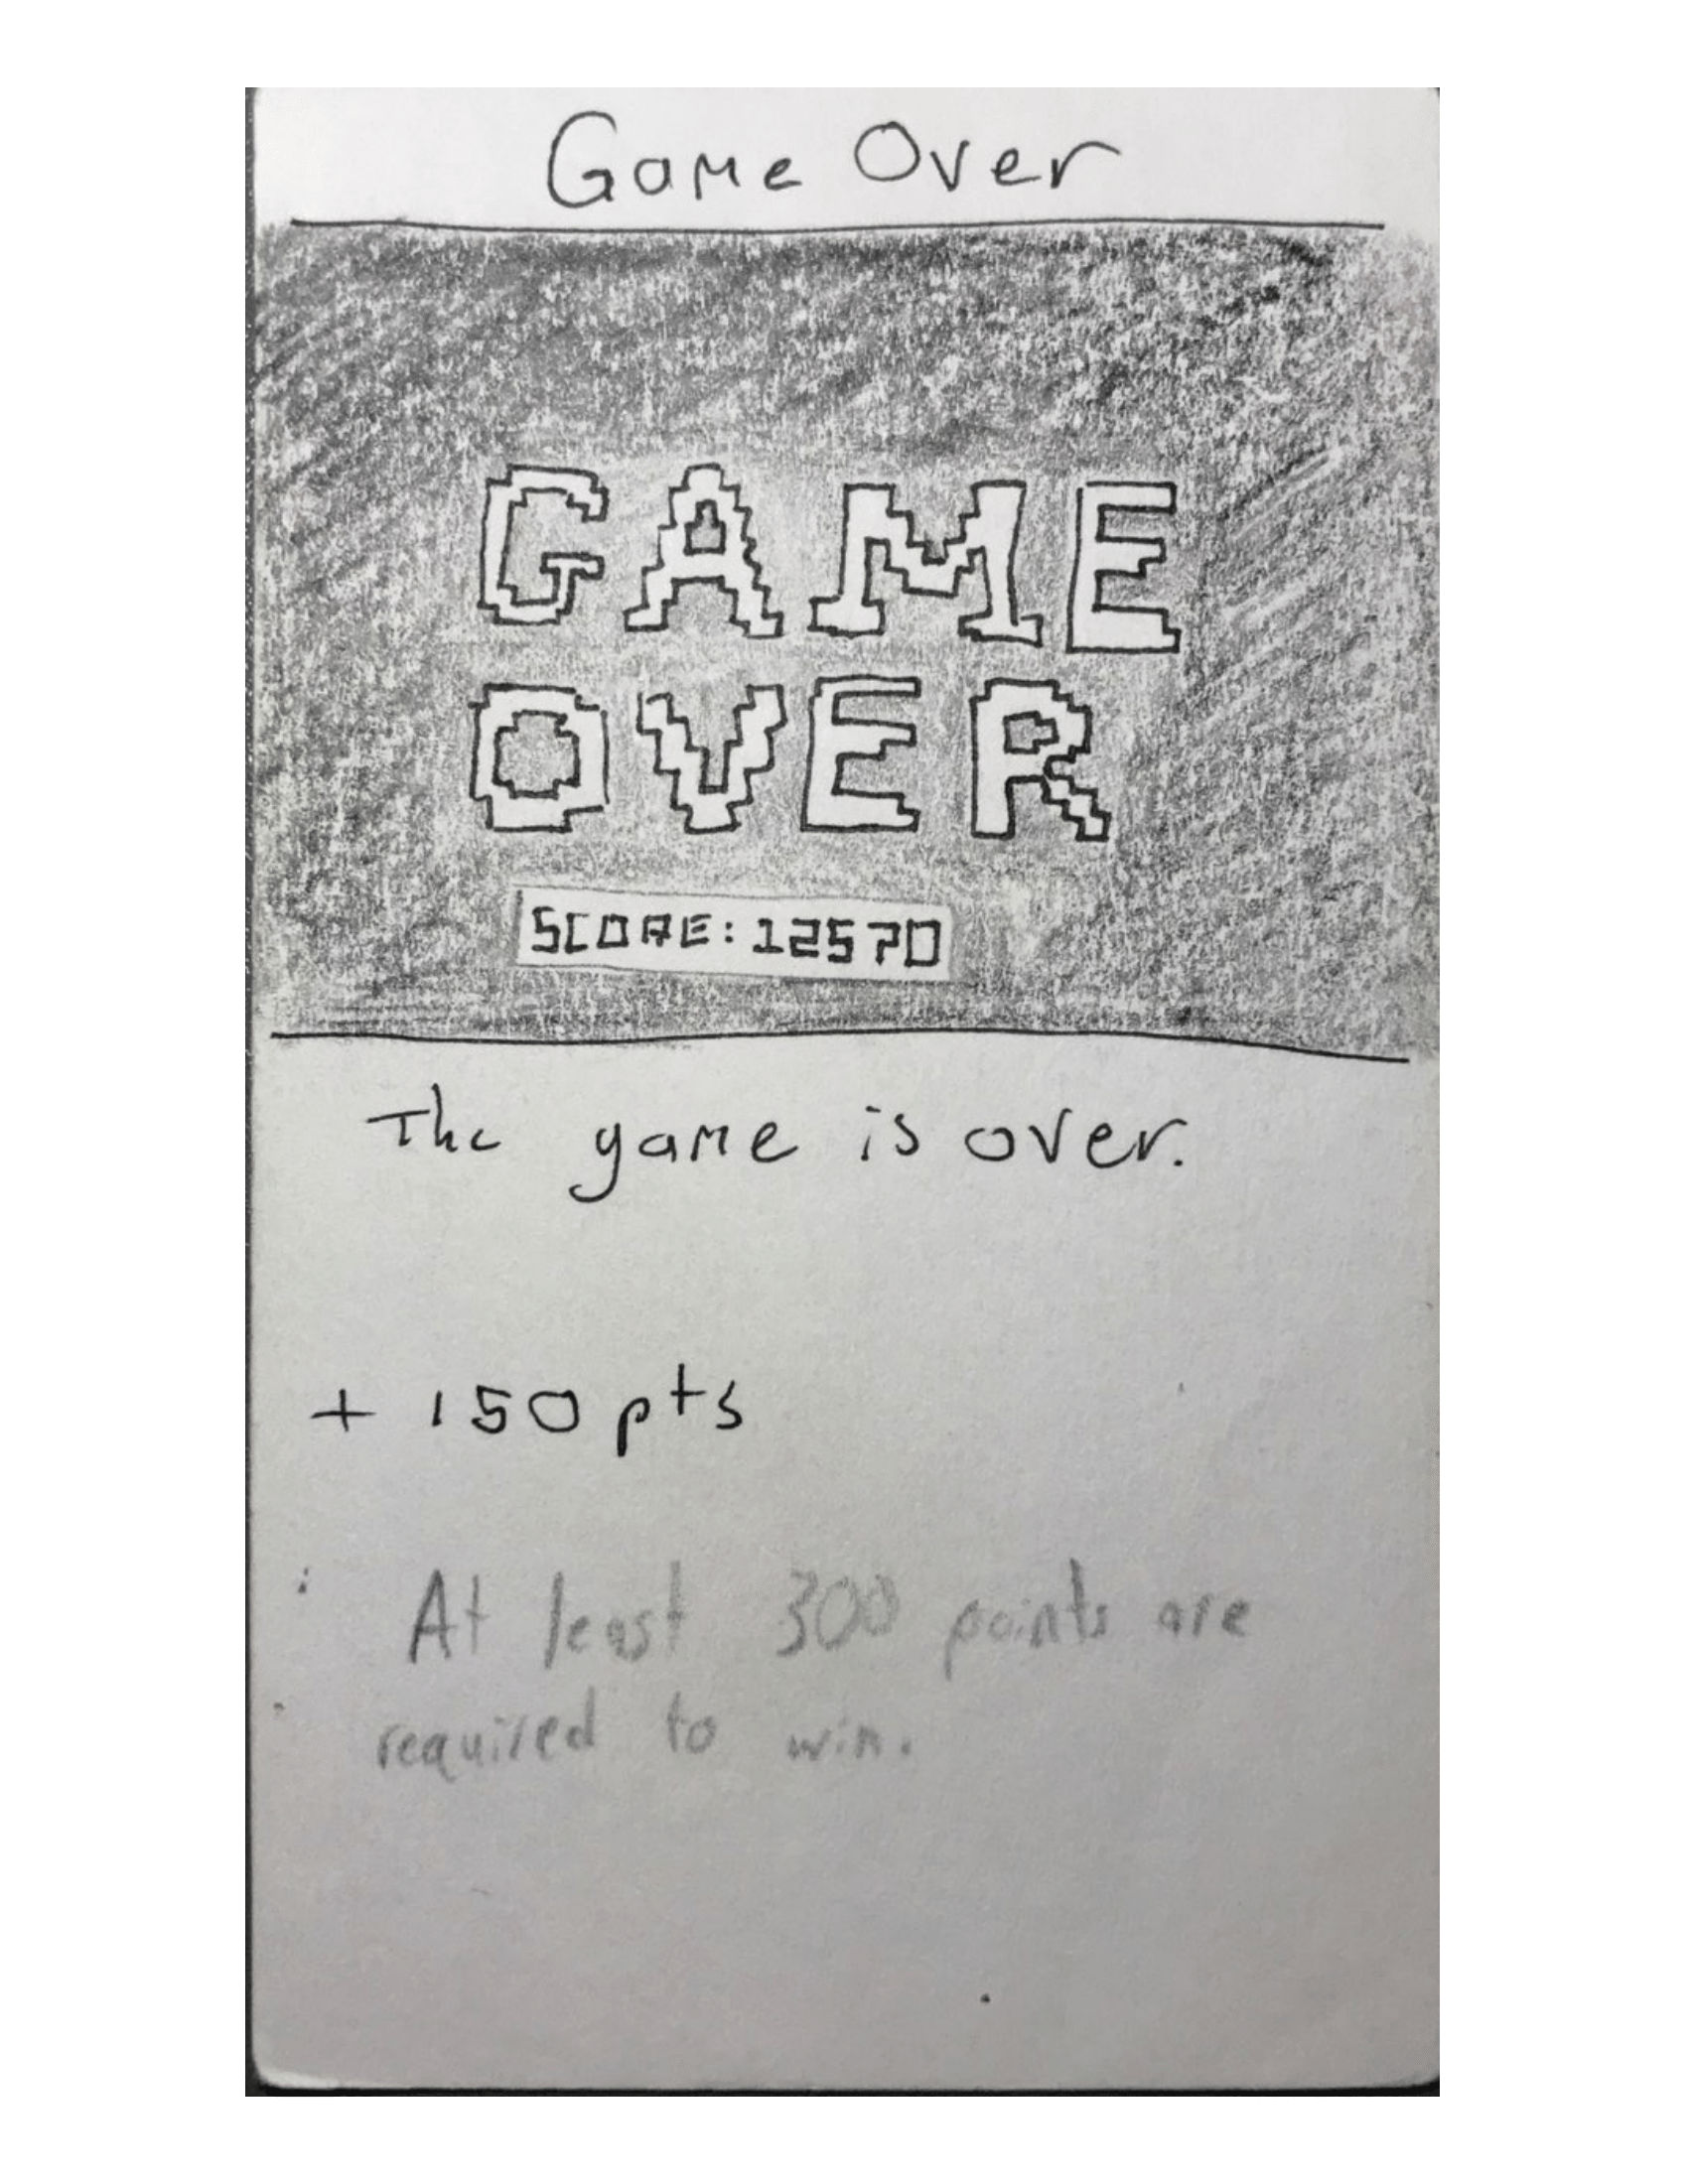 Game Over
GAME
OVER
SCORE:12570
The game is over.
+ 150 pts
At least 300 points are
required to win.